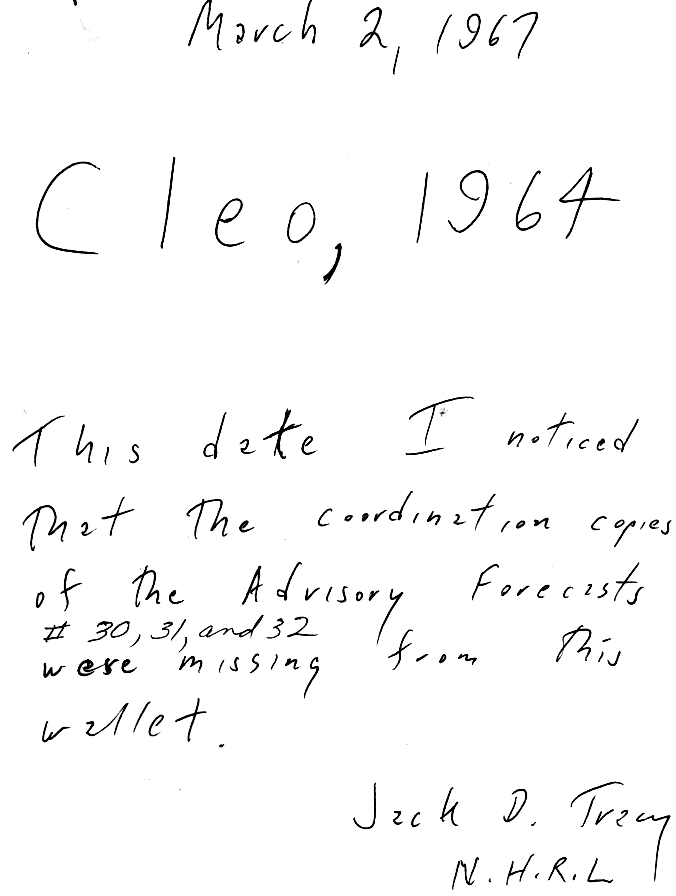 March 2, 1967
Cleo, 1964
This date I noticed
that the coordination copies
of the Advisory Forecasts
# 30, 31, and 32
were missing from this
wallet.
Jack D. Tracy
N.H.R.L